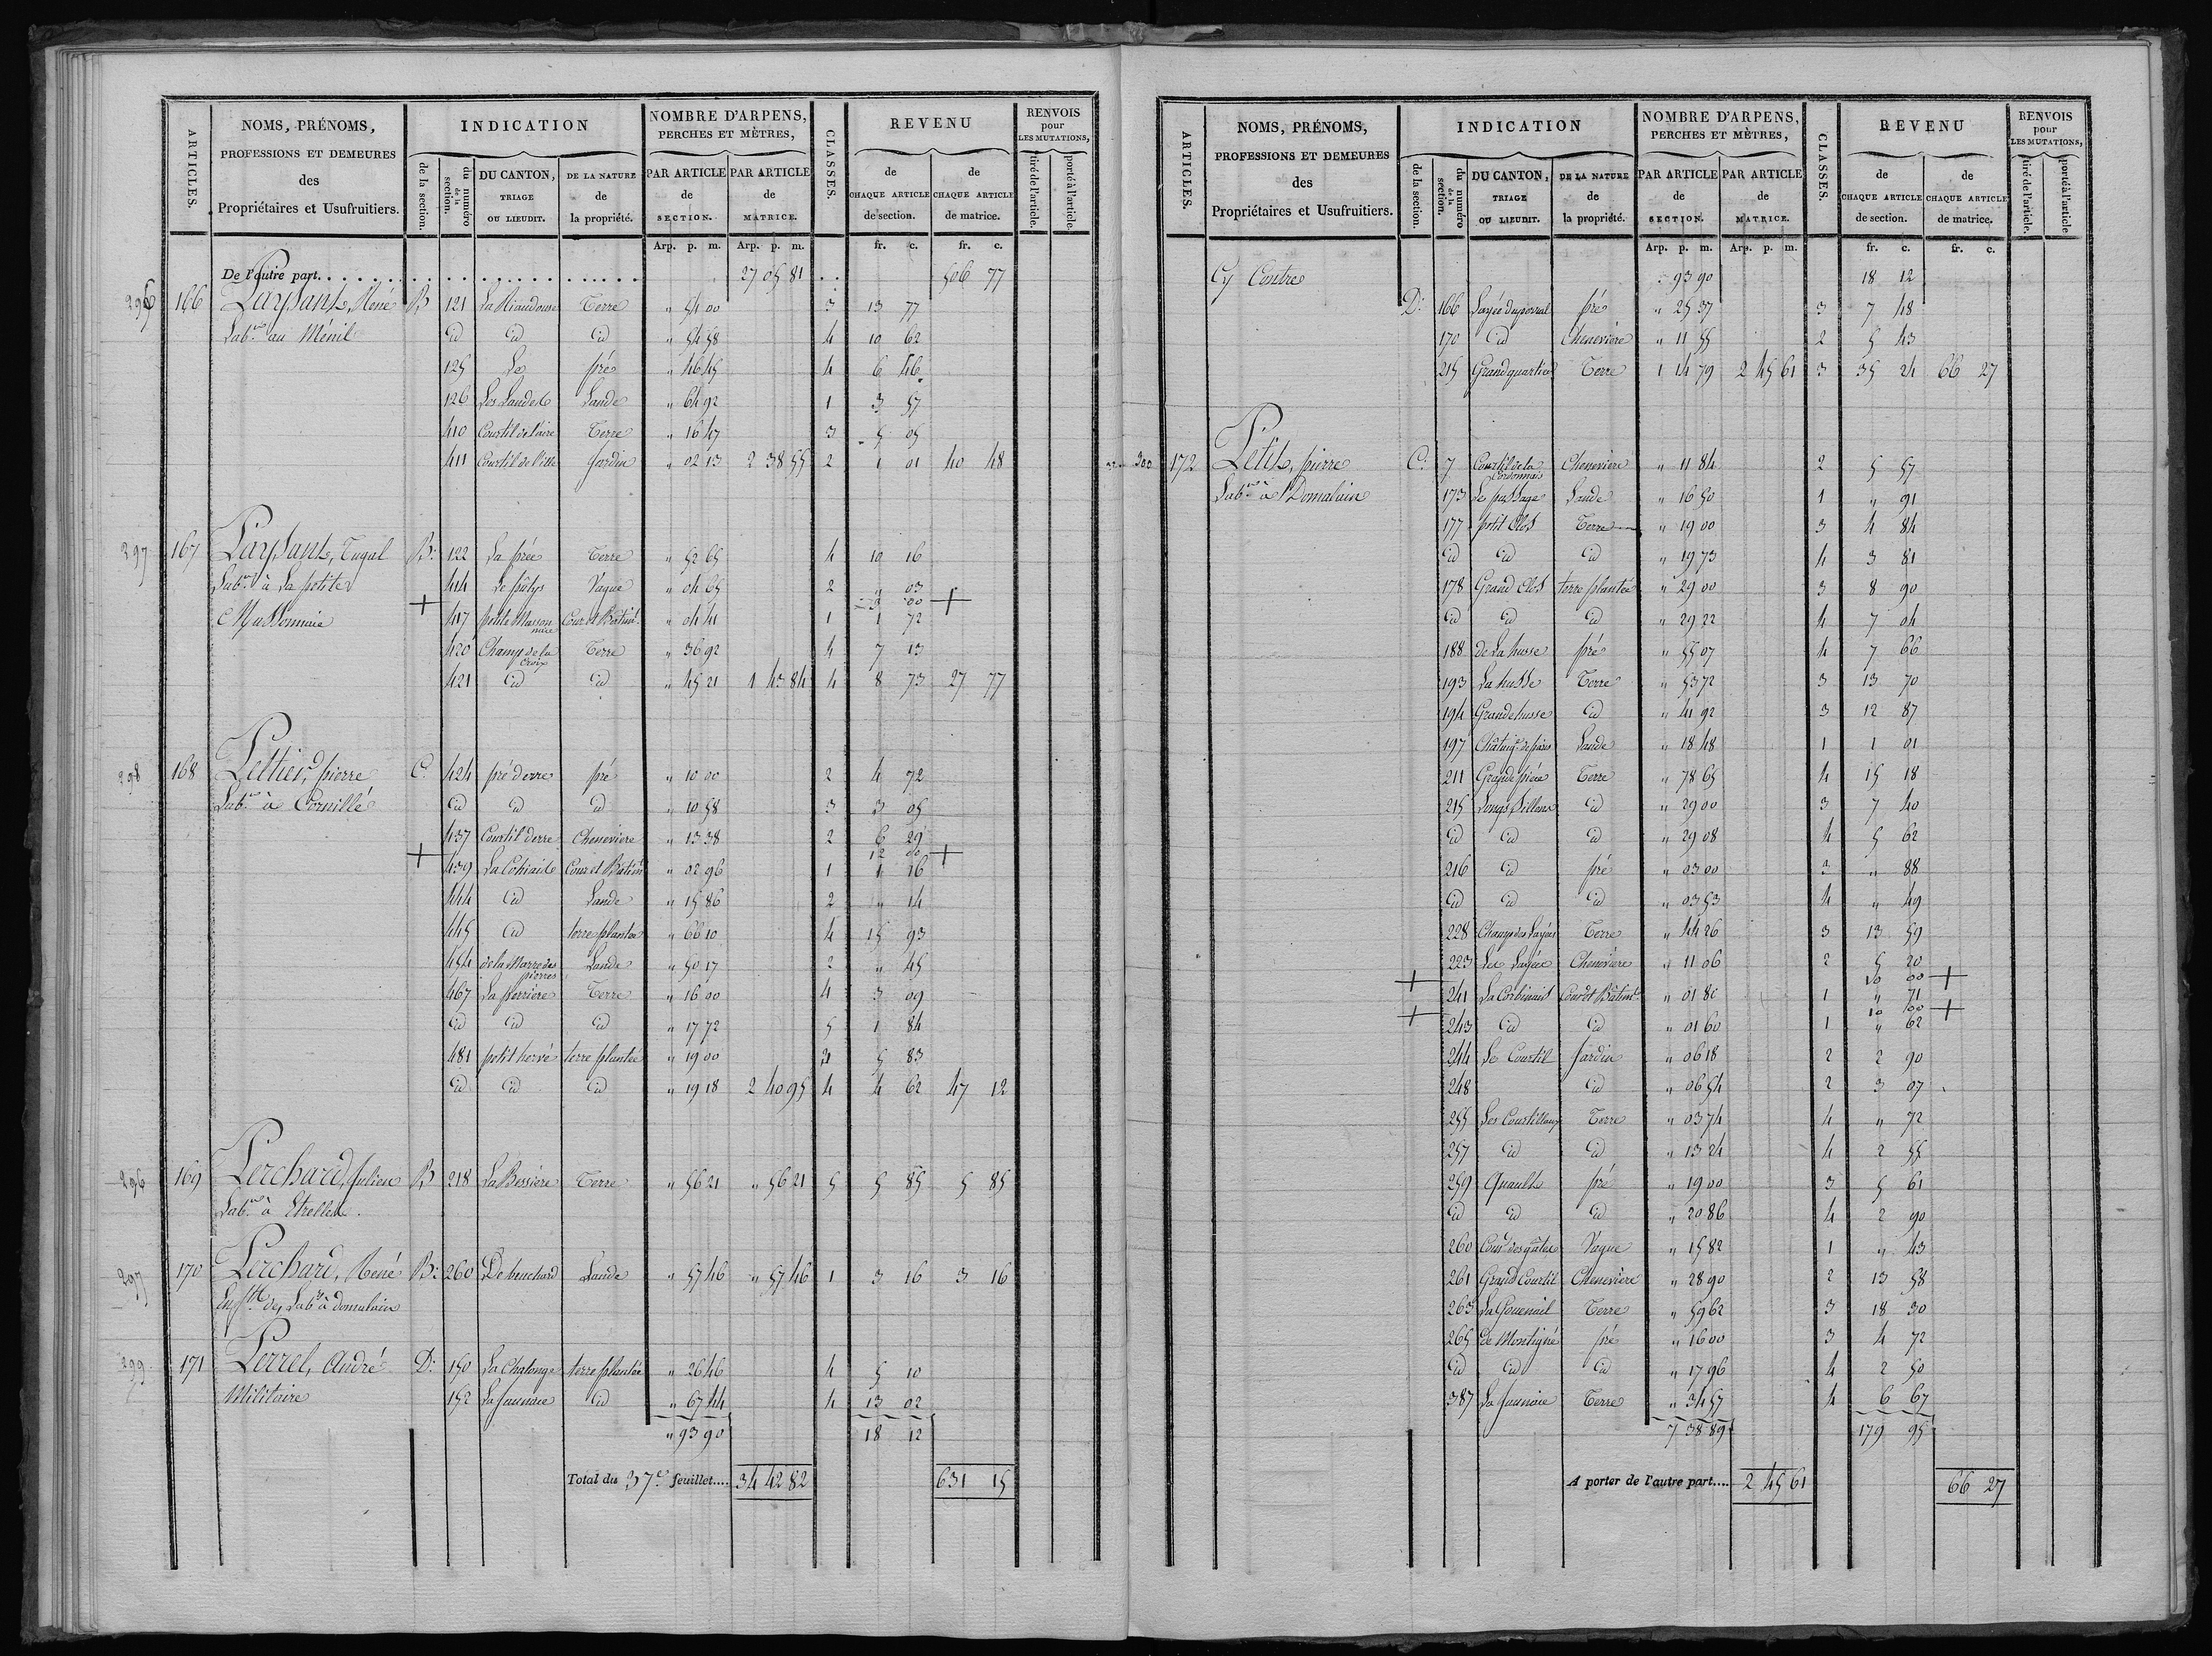 ARTICLES.
NOMS, PRÉNOMS,
PROFESSIONS ET DEMEURES
des
Propriétaires et Usufruitiers.
INDICATION
de la section.
du numéro de la section.
DU CANTON, TRIAGE OU LIEUDIT.
DE LA NATURE de la propriété.
NOMBRE D'ARPENS, PERCHES ET MÈTRES,
PAR ARTICLE de SECTION.
PAR ARTICLE de MATRICE.
CLASSES.
REVENU
de CHAQUE ARTICLE de section.
de CHAQUE ARTICLE de matrice.
RENVOIS pour LES MUTATIONS,
tiré de l'article.
porté à l'article.
Arp. p. m. Arp. p. m. fr. c. fr. c.
De l'autre part 27 05 81 506 77
296 166 René B 121 Terre " 51 00 3 13 77
Lab.r au Ménil id id id " 54 58 4 10 62
125 Le pré " 46 45 4 6 46
126 Les Landes Lande " 64 92 1 3 57
410 Courtil de l'aire Terre " 16 47 3 5 05
411 Courtil de l'ille Jardin " 02 13 2 38 55 2 1 01 40 48
297 167 Tugal B: 122 La prée Terre " 52 65 4 10 16
Lab.r à La petite 414 Le pâtys Vague " 04 65 2 " 03
+ 3 00 +
Massonnaie 417 petite Massonnaie Cour et Bâtim.t " 04 41 1 1 72
420 Champ de la Croix Terre " 36 92 4 7 13
421 id id " 45 21 1 43 84 4 8 73 27 77
298 168 Pettier, pierre C. 424 pré derre pré " 10 00 2 4 72
Lab.r à Cornillé id id id " 10 58 3 3 05
437 Courtil derre Cheneviere " 13 38 2 6 29
+ 12 00 +
439 Cour et Bâtim.t " 02 96 1 1 16
444 id Lande " 15 86 2 " 14
445 id terre plantée " 66 10 4 15 93
454 de la Marre des pierres Lande " 50 17 2 " 45
467 La perriere Terre " 16 00 4 3 09
id id id " 17 72 5 1 84
481 petit hervé terre plantée " 19 00 3 5 83
id id id " 19 18 2 40 95 4 4 62 47 12
296 169 Perchard, Julien B 218 La Bessiere Terre " 56 21 " 56 21 5 5 85 5 85
Lab.r à Etrelles.
297 170 Perchard, René B: 260 Lande " 57 46 " 57 46 1 3 16 3 16
Lab.r à domalain
299 171 Perrel, André D: 150 La Chalonge terre plantée " 26 46 4 5 10
Militaire 152 La Jaunaie id " 67 44 4 13 02
" 93 90 18 12
Total du 37.e feuillet.... 34 42 82 631 15
ARTICLES.
NOMS, PRÉNOMS,
PROFESSIONS ET DEMEURES
des
Propriétaires et Usufruitiers.
INDICATION
de la section.
du numéro de la section.
DU CANTON, TRIAGE OU LIEUDIT.
DE LA NATURE de la propriété.
NOMBRE D'ARPENS, PERCHES ET MÈTRES,
PAR ARTICLE de SECTION.
PAR ARTICLE de MATRICE.
CLASSES.
REVENU
de CHAQUE ARTICLE de section.
de CHAQUE ARTICLE de matrice.
RENVOIS pour LES MUTATIONS,
tiré de l'article.
porté à l'article
Arp. p. m. Arp. p. m. fr. c. fr. c.
Cy Contre " 93 90 18 12
D: 166 pré " 25 37 3 7 48
170 id Cheneviere " 11 55 2 5 43
215 Grand quartier Terre 1 14 79 2 45 61 3 35 24 66 27
300 172 Petit, pierre C. 7 Courtil de la Cordonnais Cheneviere " 11 84 2 5 57
Lab.r à Domalain 173 Le passage Lande " 16 50 1 " 91
177 petit Clos Terre " 19 00 3 4 84
id id id " 19 73 4 3 81
178 Grand Clos terre plantée " 29 00 3 8 90
id id id " 29 22 4 7 04
188 de La husse pré " 55 07 4 7 66
193 La husse Terre " 53 72 3 13 70
194 Grande husse id " 41 92 3 12 87
197 Lande " 18 48 1 1 01
211 Grande pièce Terre " 78 65 4 15 18
215 Longs Sillons id " 29 00 3 7 40
id id id " 29 08 4 5 62
216 id pré " 03 00 3 " 88
id id id " 03 53 4 " 49
228 Champ des Layées Terre " 44 26 3 13 59
223 Les Layées Cheneviere " 11 06 2 5 20
+ 10 00 +
241 La Corbinais Cour et Bâtim.t " 01 80 1 " 71
+ 10 00 +
243 id id " 01 60 1 " 62
244 Le Courtil Jardin " 06 18 2 2 90
248 id " 06 54 2 3 07
255 Les Courtillons Terre " 03 74 4 " 72
257 id id " 13 24 4 2 55
259 pré " 19 00 3 5 61
id id id " 20 86 4 2 90
260 Vague " 15 82 1 " 43
261 Grand Courtil Cheneviere " 28 90 2 13 58
263 Terre " 59 62 3 18 30
265 de Montigné pré " 16 00 3 4 72
id id id " 17 96 4 2 50
387 La Jaunaie Terre " 34 57 4 6 67
7 38 89 179 95
A porter de l'autre part.... 2 45 61 66 27